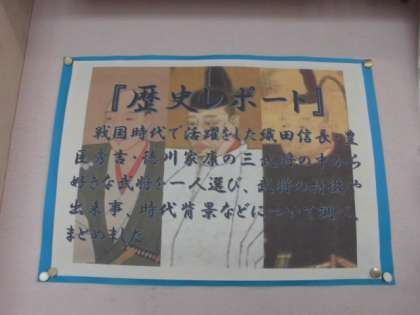 『歴史レポート』
戦国時代で活躍をした織田信長・豊
臣秀吉・徳川家康の三武将の中から
好きな武将を一人選び、武将の特徴や
出来事、時代背景などについて調べ、
まとめました。